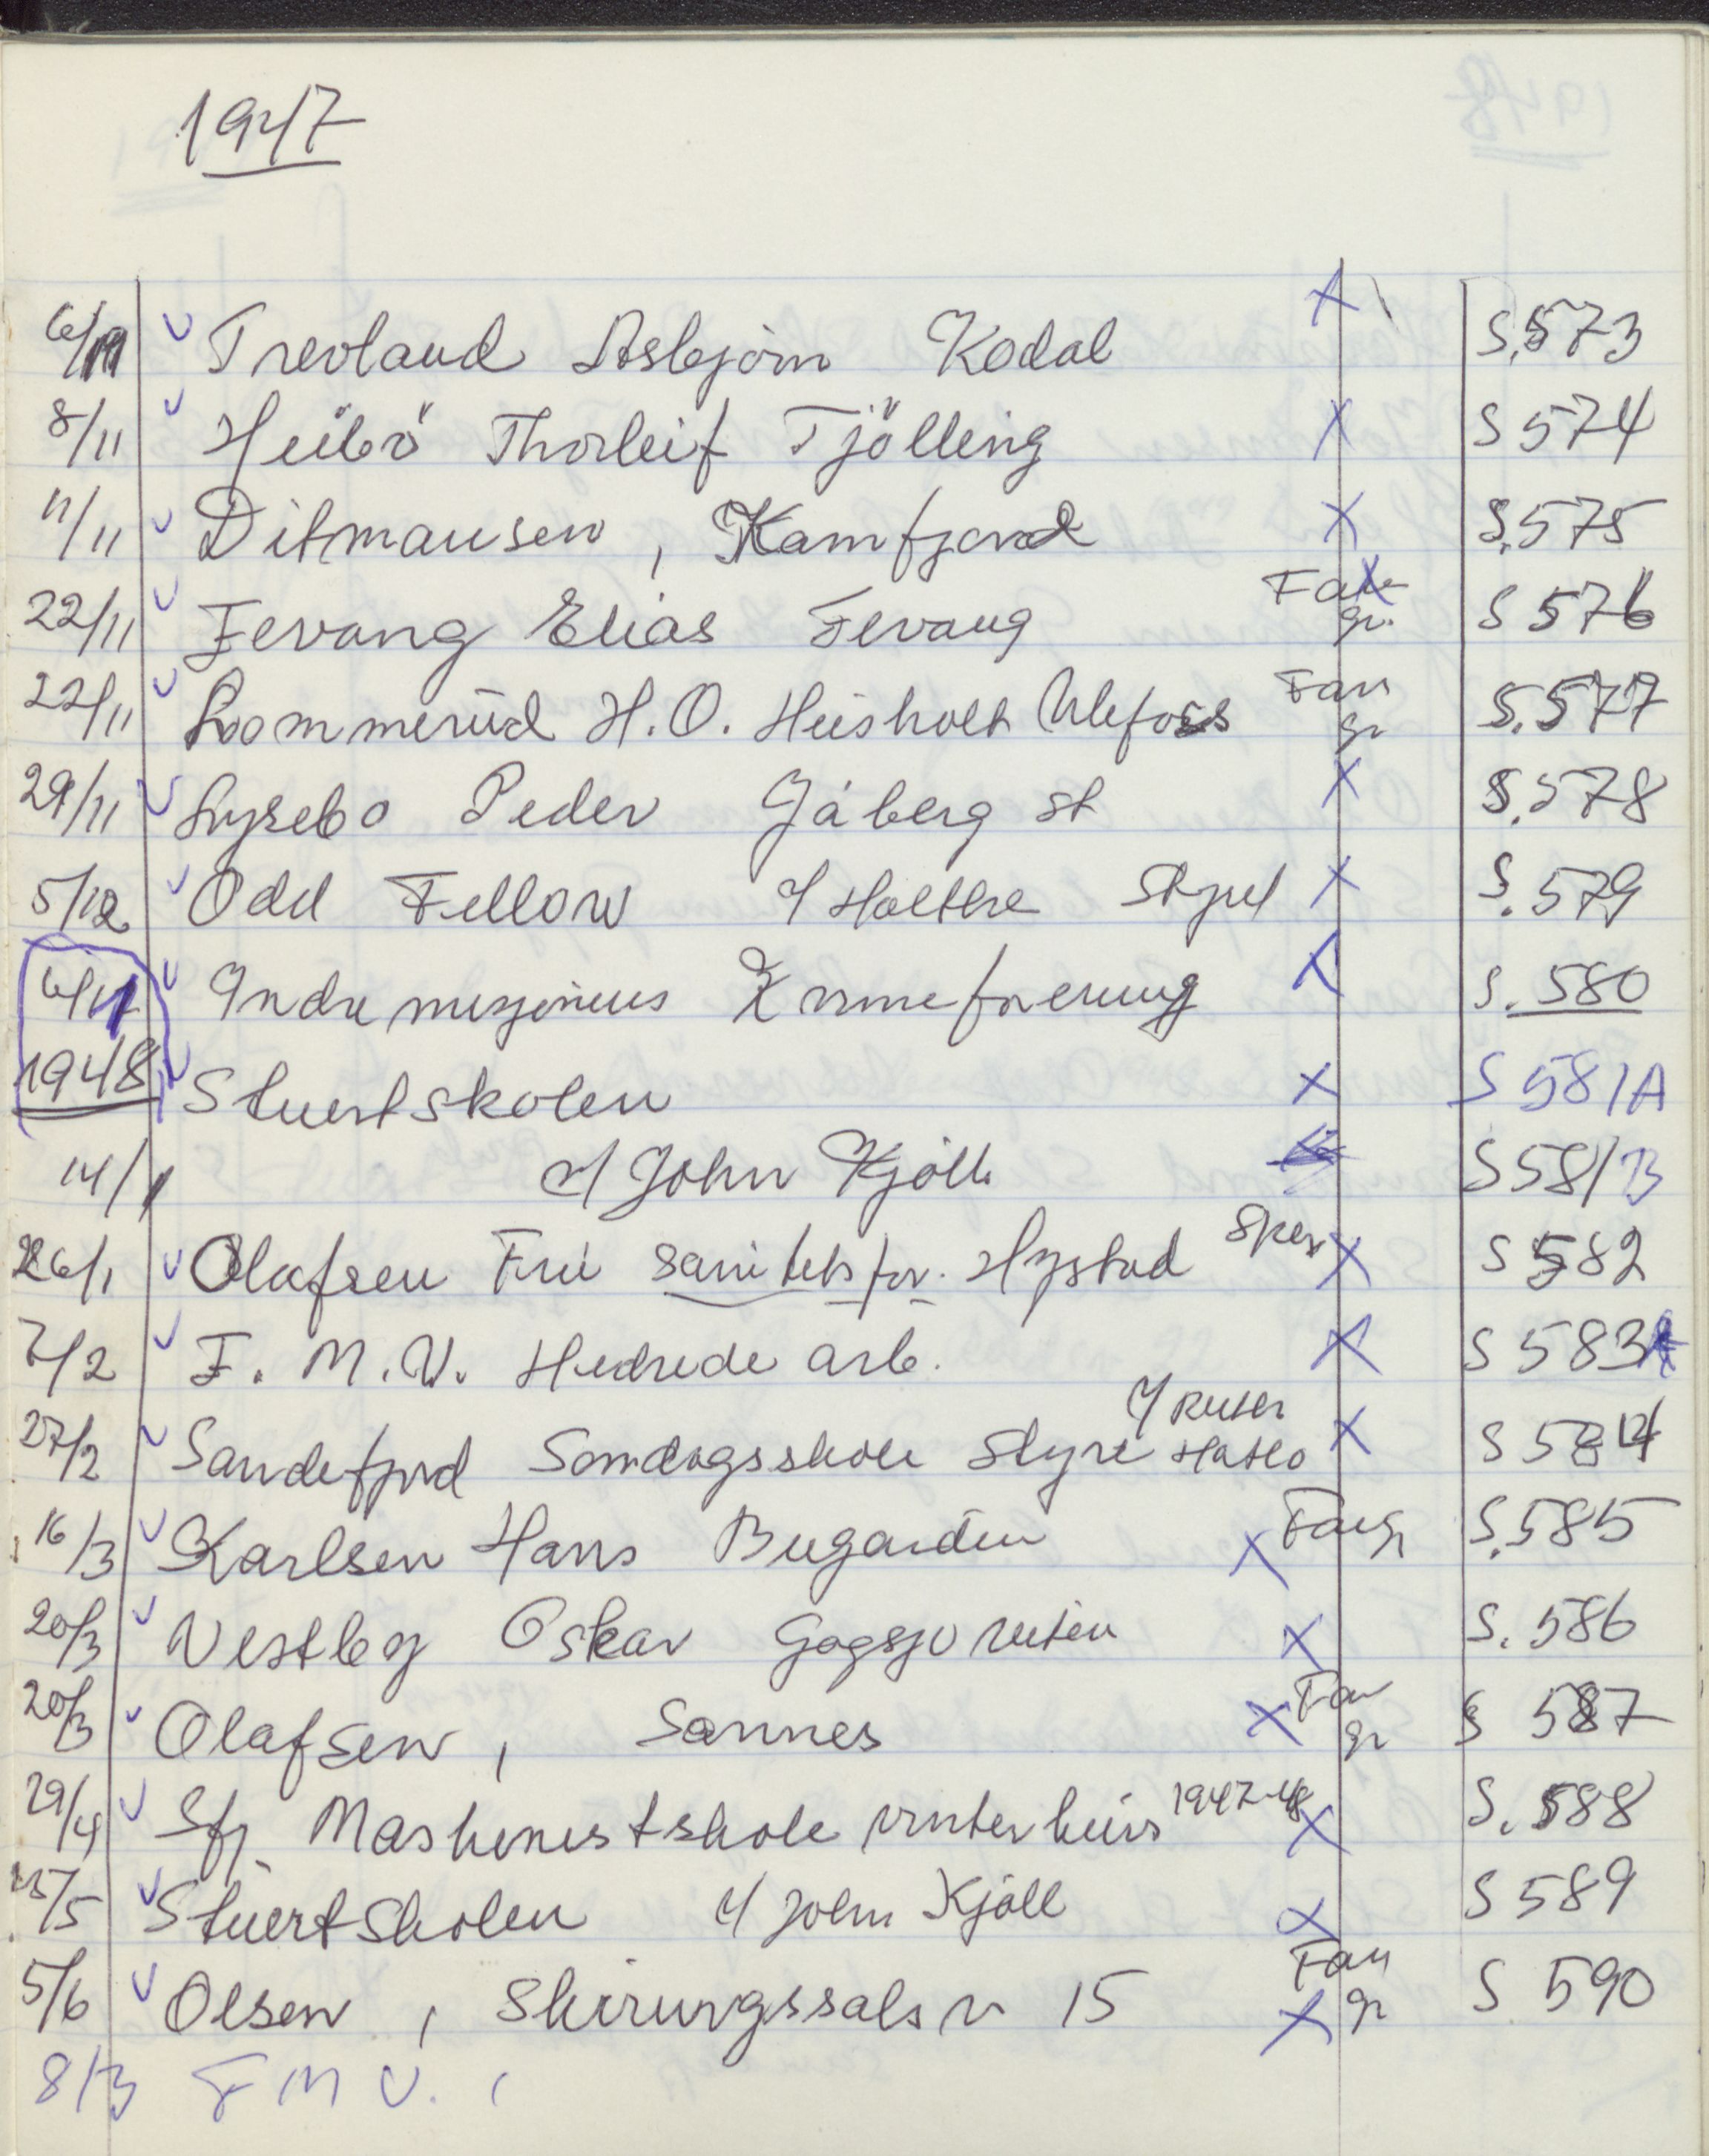 1947
6/11 Trevland Asbjörn Kodal X S.573
8/11 Heibö Thorleif Tjölling X S 574
11/11 Ditmansen, Kamfjord X S.575
22/11 Fevang Elias Fevang Fam gr. S 576
22/11 Lommerud H.O. Heisholt Ulefoss Fam gr S.577
29/11 Lysebo Peder Jåberg st X S.578
5/12 Odd Fellow X S.579
6/1 Indremisjonens X S. 580
1948 Stuertskolen X S 581A
14/1 John Kjöll S 581B
26/1 Olafsen Fru sanitetsfor. Hystad X S 582
7/2 F. M. V. Hedrede arb. X S 583
27/2 Sandefjord Sondagsskole Styre X S 584
16/3 Karlsen Hans Bugarden X Fam gr S.585
20/3 Vestby Oskar X S. 586
20/3 Olafsen, Sannes X Fam gr S 587
29/4 Sfj Maskinistskole vinterkurs 1947-48 X S. 588
15/5 Stuertskolen John Kjöll X S 589
5/6 Olsen, Skiringssals v 15 X Fam gr S 590
8/3 F M V.